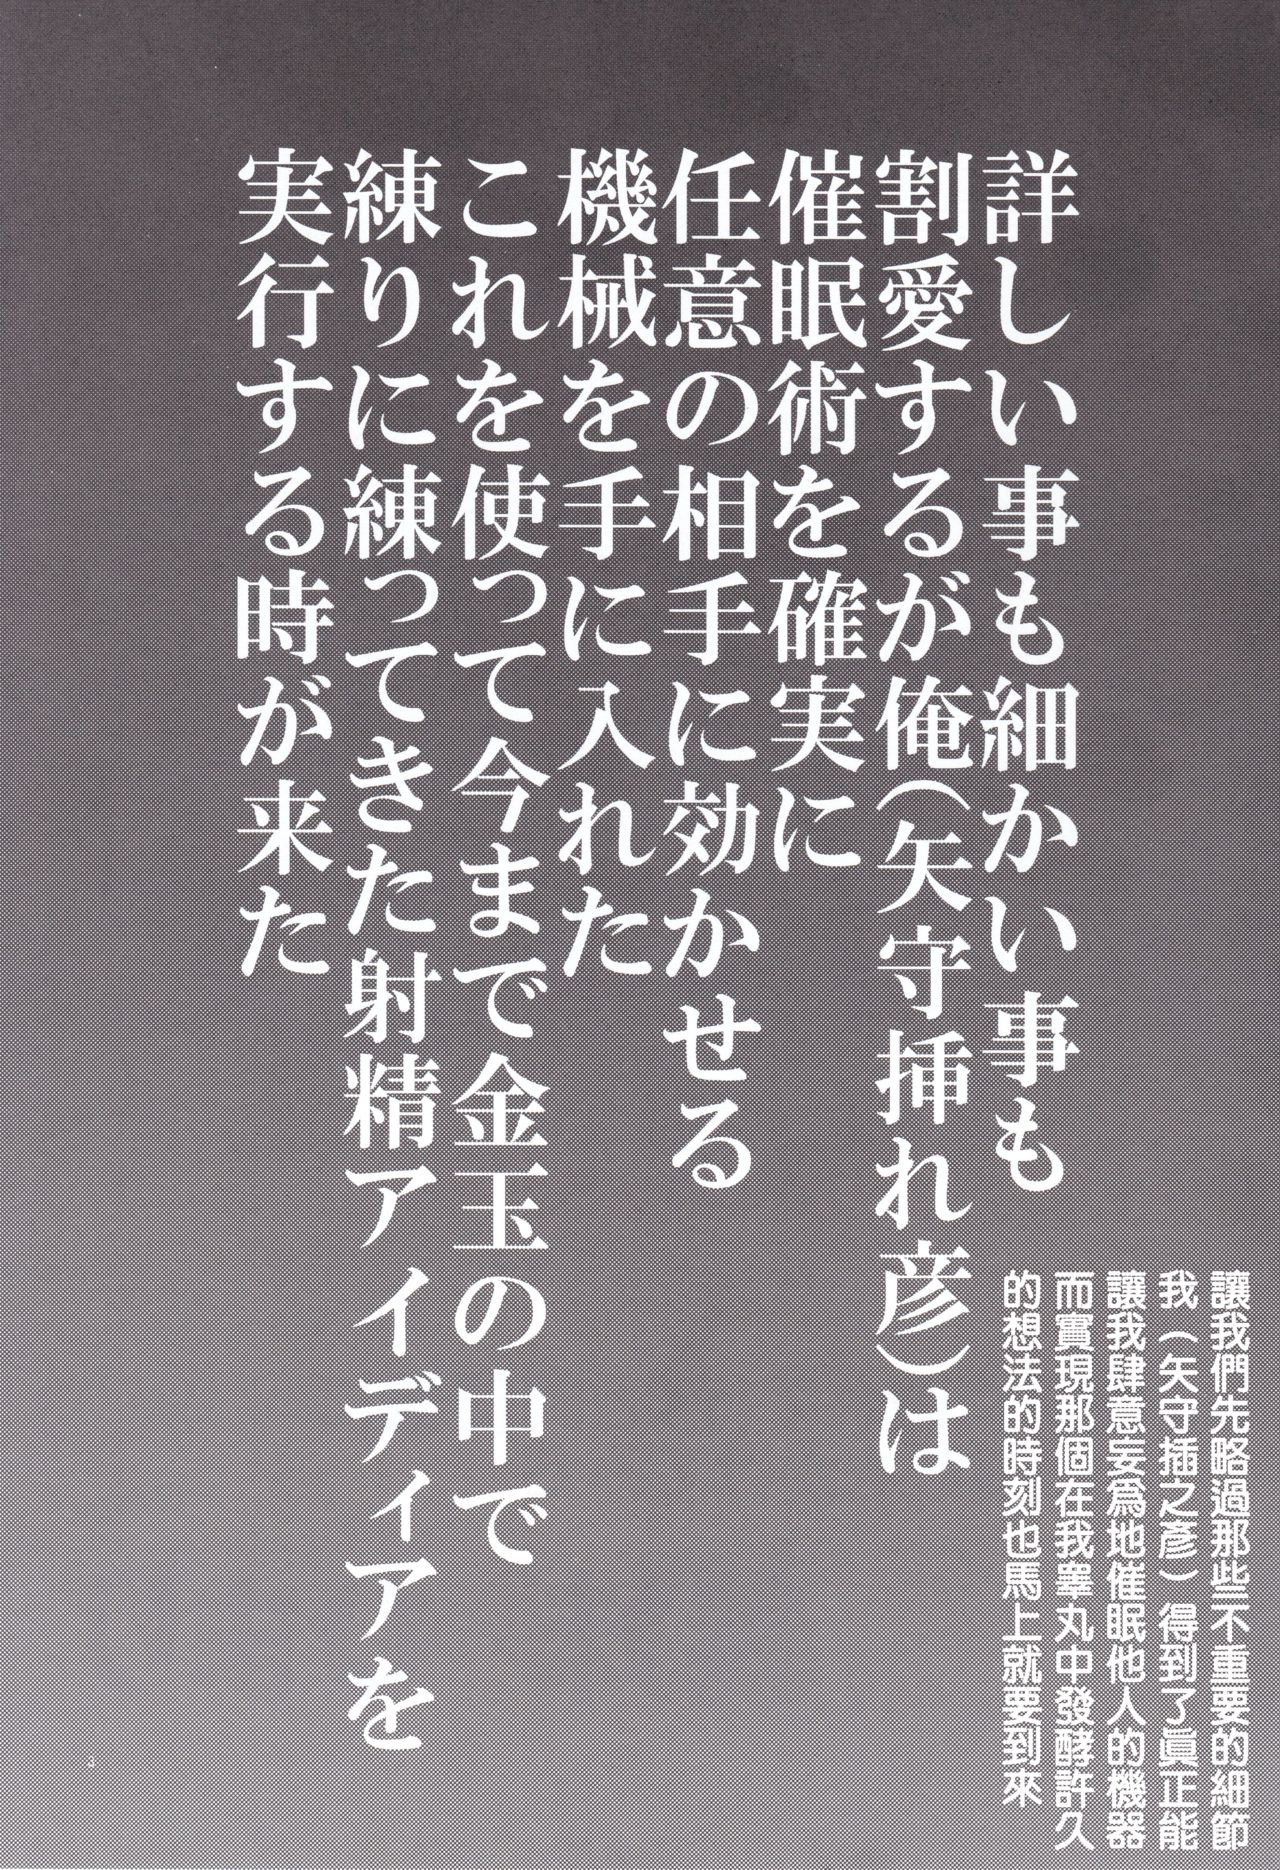 詳しい事も細かい事も
割愛するが俺(矢守挿れ彦)は
催眠術を確実に
任意の相手に効かせる
機械を手に入れた
これを使って今まで金玉の中で
練りに練ってきた射精アイディアを
実行する時が来た
讓我們先略過那些不重要的細節
我（矢守插之彥）得到了眞正能
讓我肆意妄為地催眠他人的機器
而實現那個在我睾丸中發酵許久
的想法的時刻也馬上就要到來
3